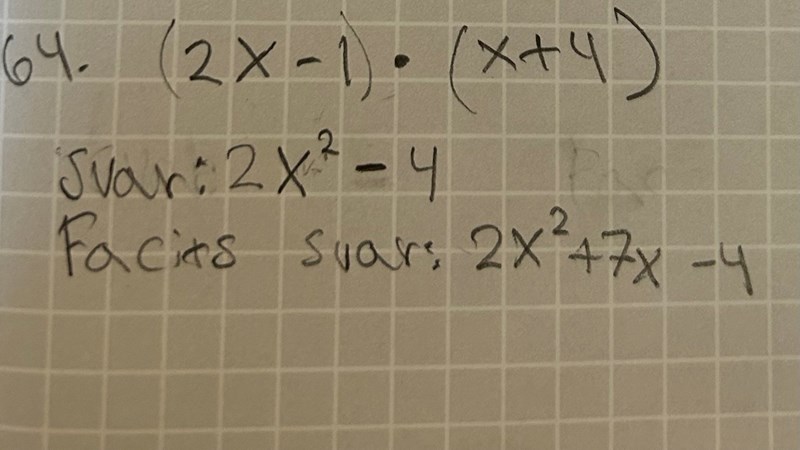 64. (2x-1)·(x+4)
Svar: 2x² - 4
Facits svar: 2x²+7x -4